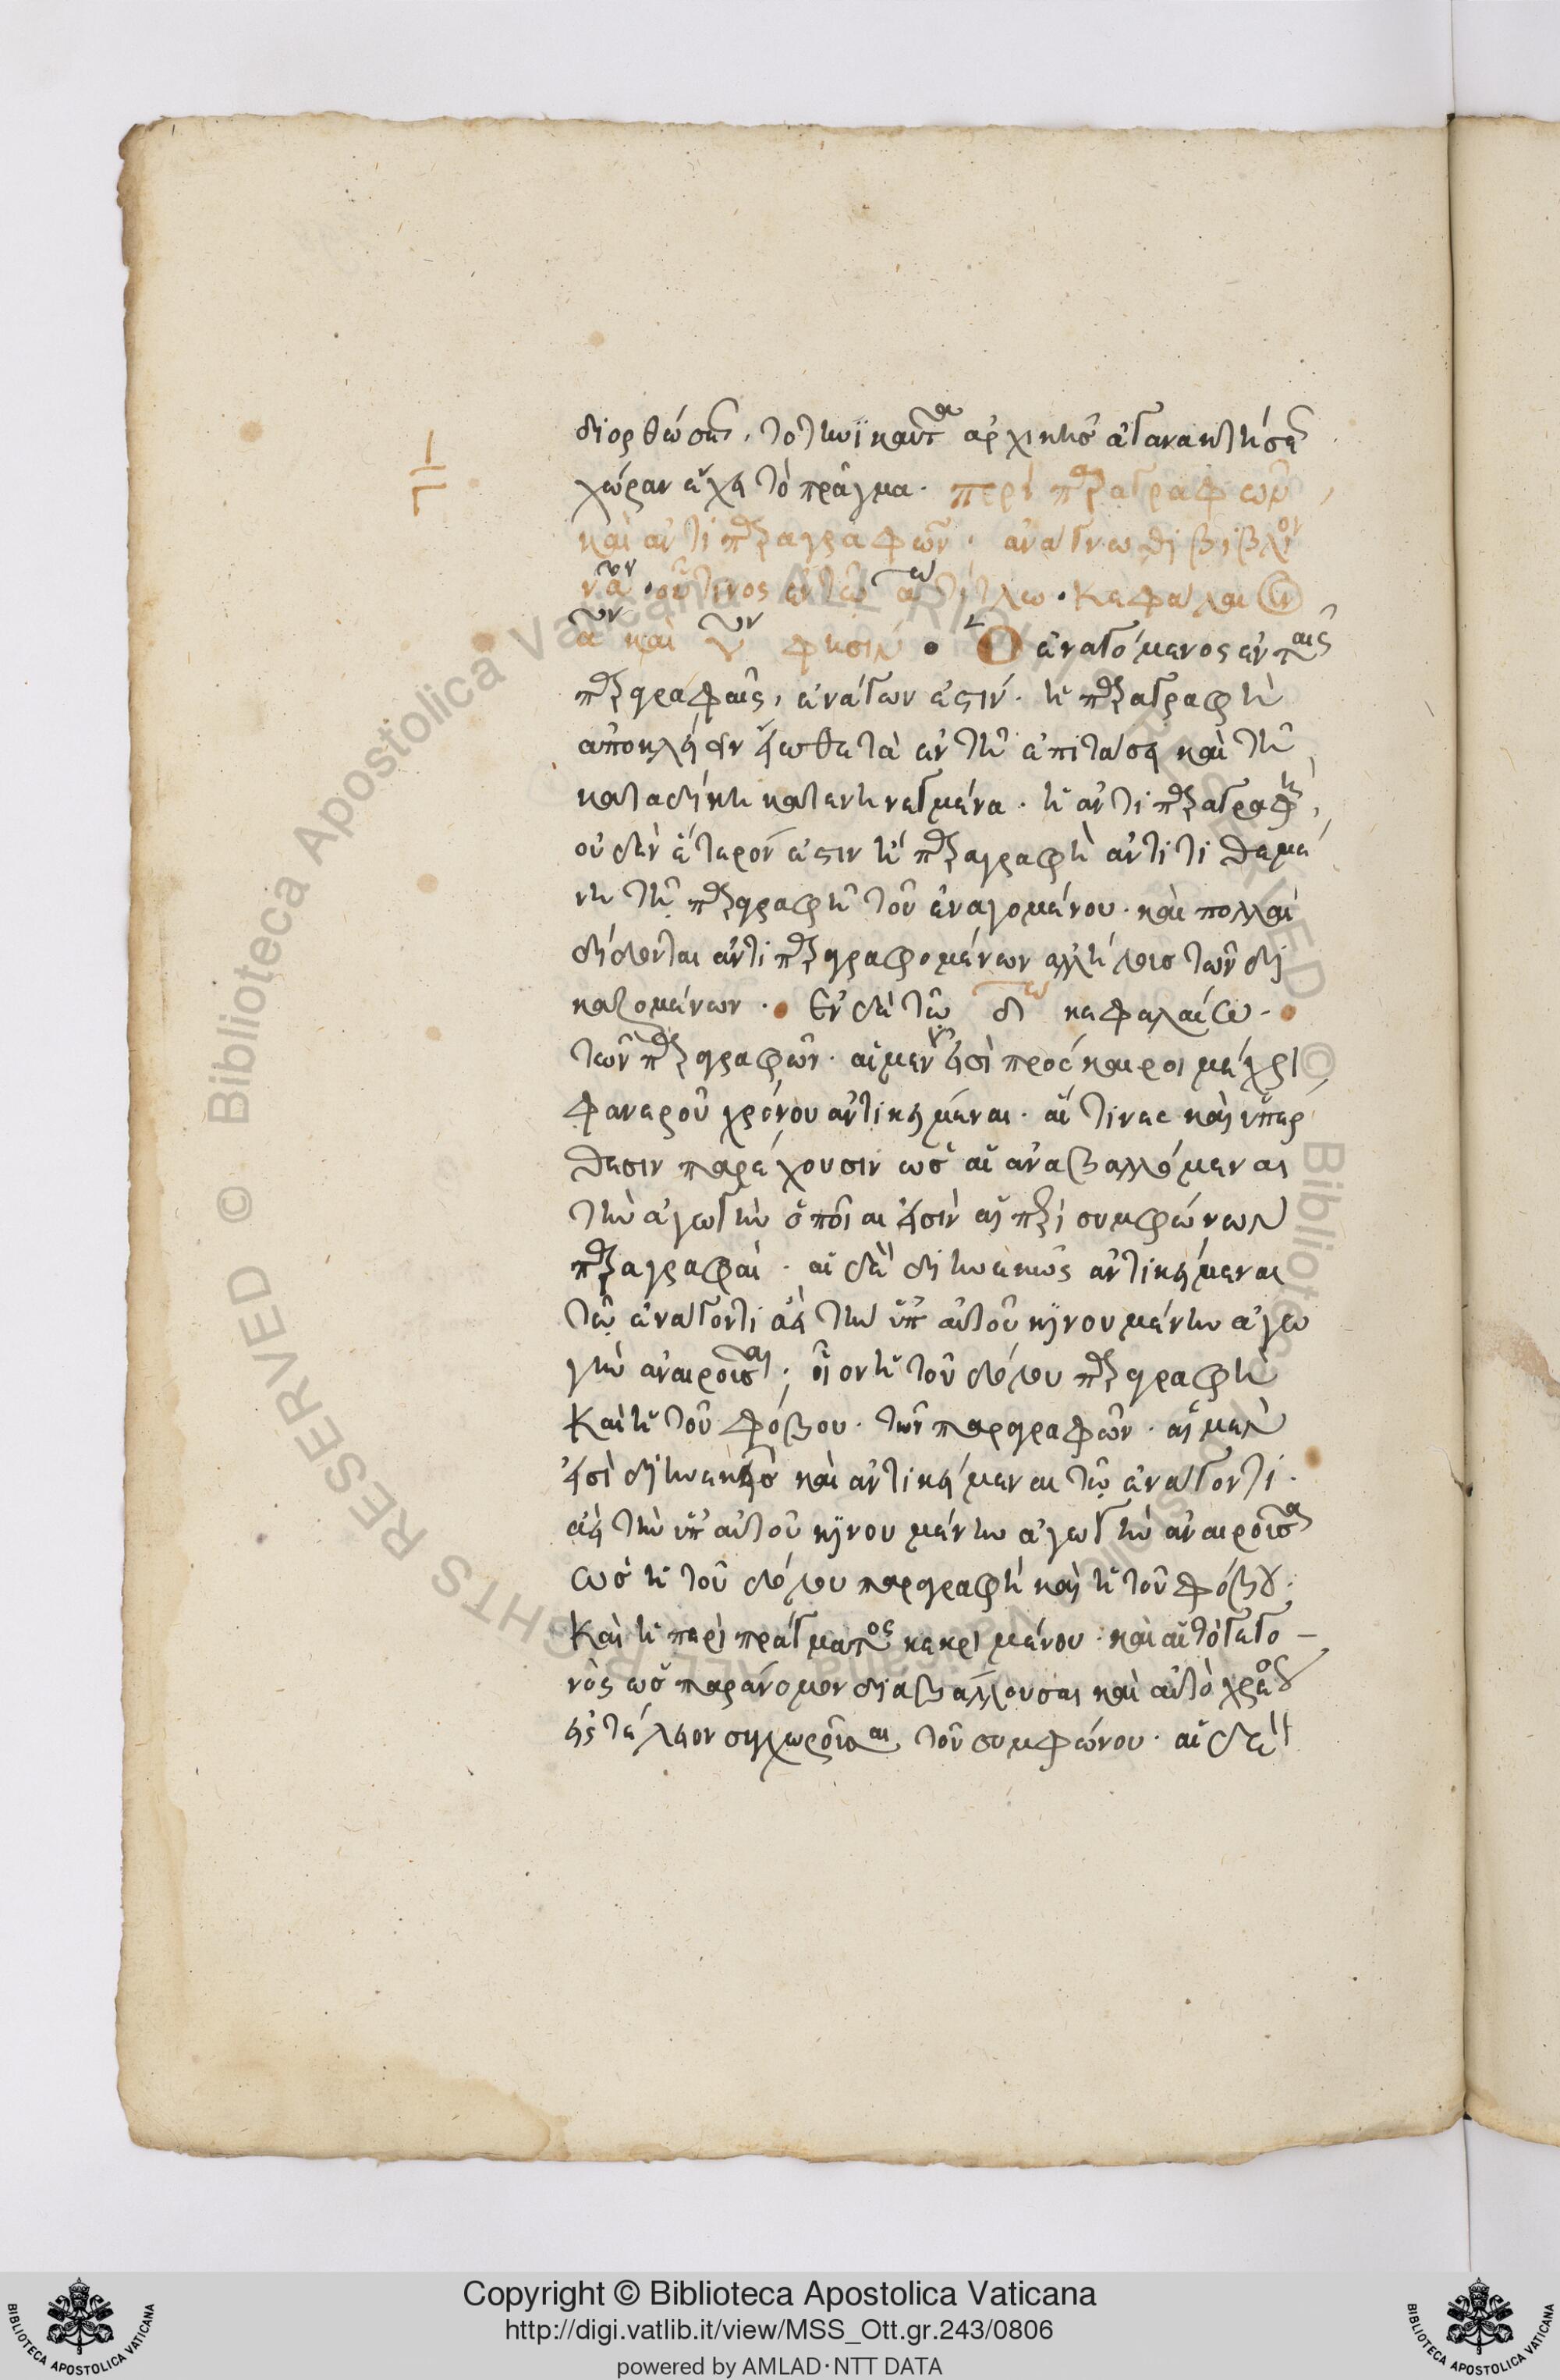 διορθώσης, τοτηνϊκαῦτα ἀρχικῆς ἀγανακτήσεως
χώραν ἔχει τὸ πρᾶγμα. περὶ παραγραφῶν,
καὶ ἀντιπαραγραφῶν. ἀνάγνωθι βιβλίον
να οὗτινος ἐν τῶ α τίτλω. κεφάλαιον
α καὶ γ φησιν. Ὁ ἐναγόμενος ἐν ταῖς
παραγραφαῖς, ἐνάγων ἐστίν. ἡ παραγραφὴ
ἀποκλείειν εἴωθε τὰ ἐν τῆ ἐπιτάσει καὶ τῆ
καταδίκη κατενηνεγμένα. ἡ ἀντιπαραγραφὴ,
οὐδὲν ἕτερόν ἐστιν ἢ παραγραφὴ ἀντιτιθεμέ
νη τῆ παραγραφῆ τοῦ ἐναγομένου. καὶ πολλαὶ
δίδονται ἀντιπαραγραφομένων ἀλλήλοις τῶν δι
καζομένων. Ἐν δὲ τῶ δ κεφαλαίω.
τῶν παραγραφῶν. αἱ μέν εἰσὶ πρόσκαιροι μέχρι
φανεροῦ χρόνου ἀντικείμεναι. αἵ τινες καὶ ὑπέρ
θεσιν παρέχουσιν ὡς αἱ ἀναβαλλόμεναι
τὴν ἀγωγὴν ὁποῖαι εἰσὶν αἱ περὶ συμφώνων
παραγραφαί. αἱ δὲ διηνεκῶς ἀντικείμεναι
τῶ ἐνάγοντι ἀεὶ τὴν ὑπ' αὐτοῦ κινουμένην ἀγω
γὴν ἀναιροῦσαι, οἷον ἡ τοῦ δόλου παραγραφὴ
Καὶ ἡ τοῦ φόβου. τῶν παραγραφῶν. αἱ μέν
εἰσὶ διηνεκεῖς καὶ ἀντικείμεναι τῶ ἐνάγοντι.
ἀεὶ τὴν ὑπ' αὐτοῦ κινουμένην ἀγωγὴν ἀναιροῦσαι
ὡς ἡ τοῦ δόλου παραγραφὴ καὶ ἡ τοῦ φόβου.
Καὶ ἡ περὶ πράγματος κεκριμένου. καὶ αἱ τὸ γεγο
νὸς ὡς παράνομον διαβάλλουσαι καὶ αὐτὸ χρέος
εἰς τέλειον συγχωροῦσαι τοῦ συμφώνου. αἱ δὲ
Copyright © Biblioteca Apostolica Vaticana
http://digi.vatlib.it/view/MSS_Ott.gr.243/0806
powered by AMLAD·NTT DATA